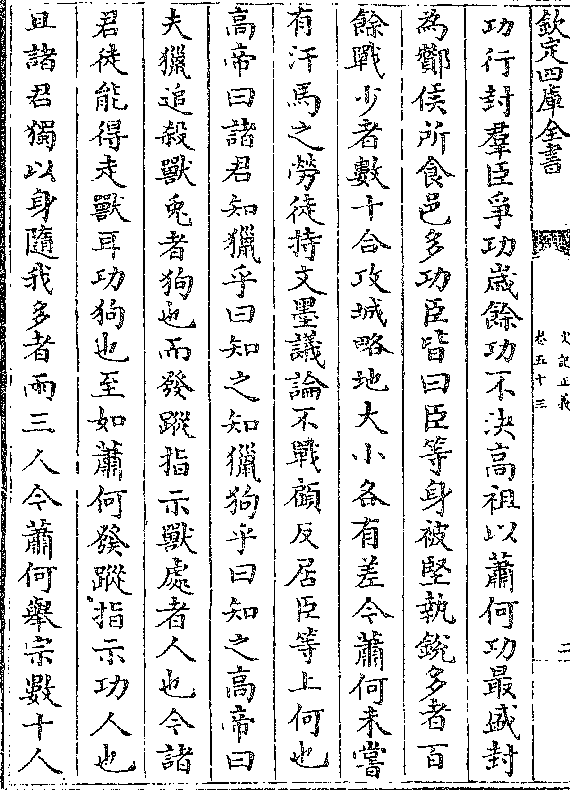 欽定四庫全書
史記正義
卷五十三
二
功行封羣臣爭功歲餘功不決高祖以蕭何功最盛封
為酇侯所食邑多功臣皆曰臣等身被堅執銳多者百
餘戰少者數十合攻城略地大小各有差今蕭何未嘗
有汗馬之勞徒持文墨議論不戰顧反居臣等上何也
高帝曰諸君知獵乎曰知之知獵狗乎曰知之高帝曰
夫獵追殺獸兔者狗也而發蹤指示獸處者人也今諸
君徒能得走獸耳功狗也至如蕭何發蹤指示功人也
且諸君獨以身隨我多者兩三人今蕭何舉宗數十人